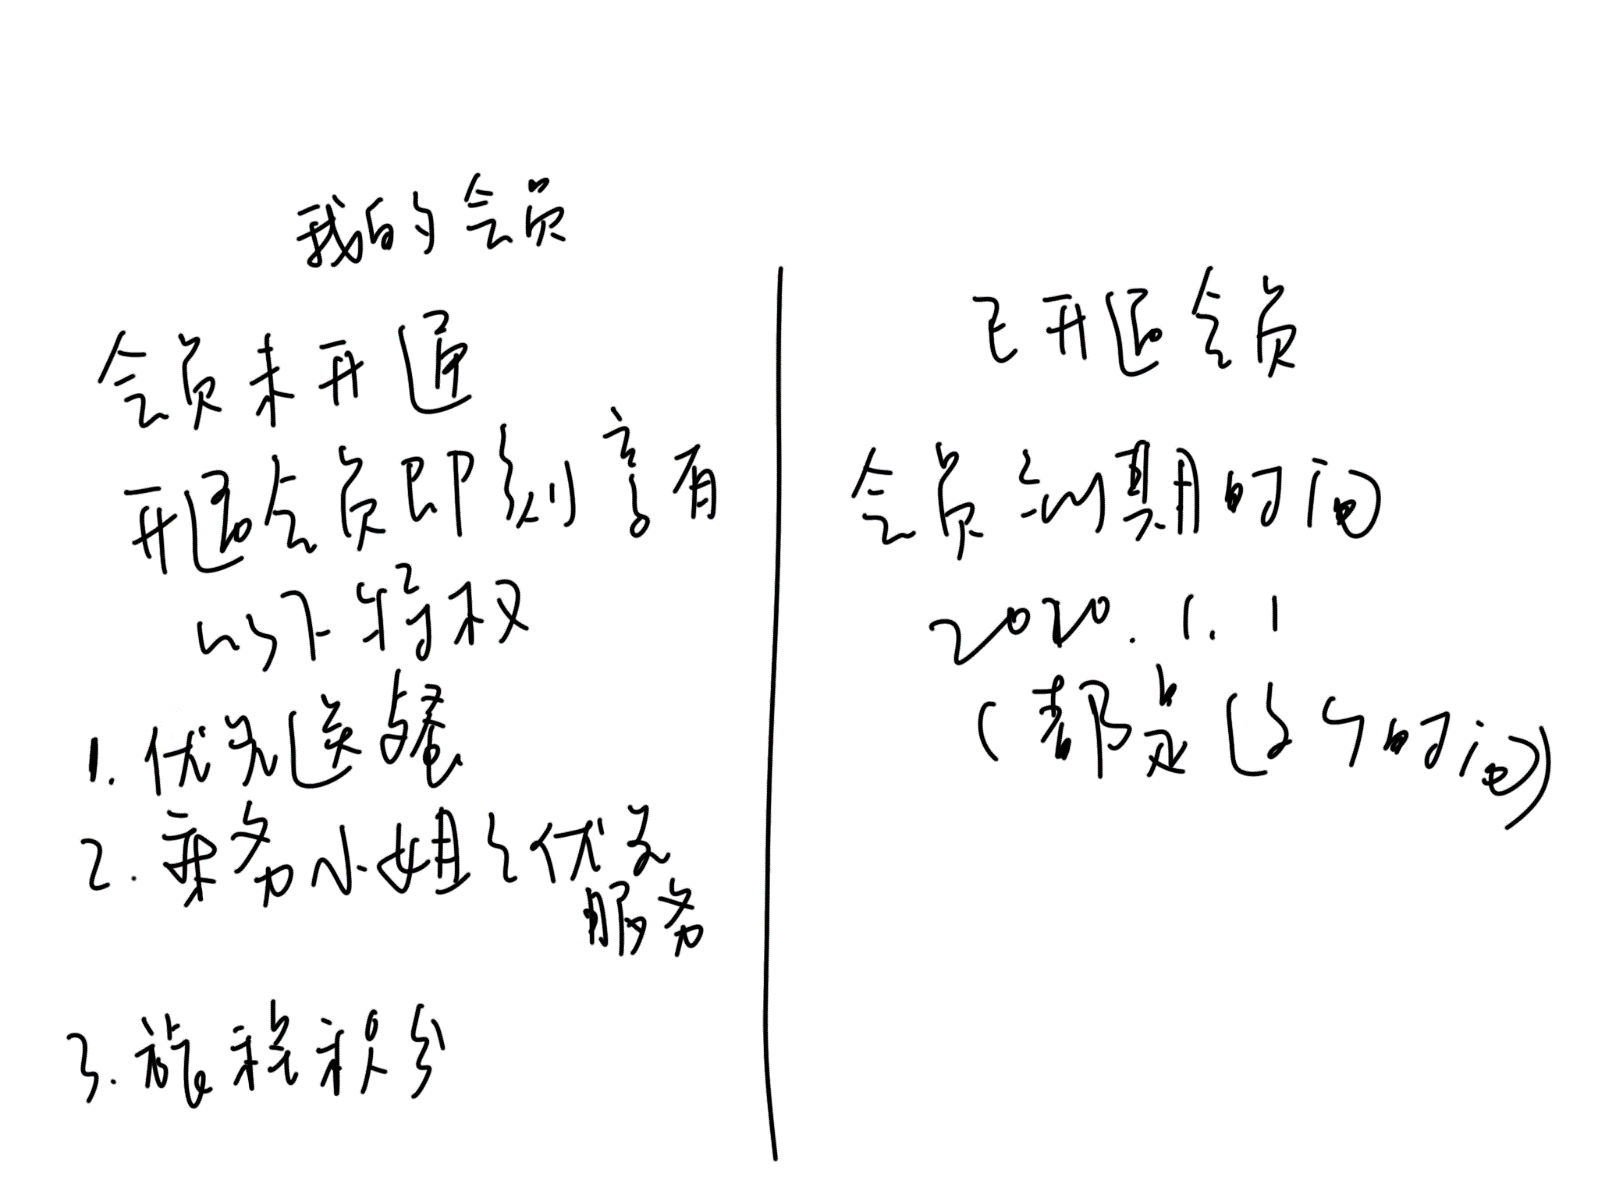 我的会员
会员未开通
开通会员即刻享有
以下特权
1. 优先送餐
2. 乘务小姐之优先
服务
3. 旅程积分
已开通会员
会员到期时间
2020.1.1
(都是这个时间)